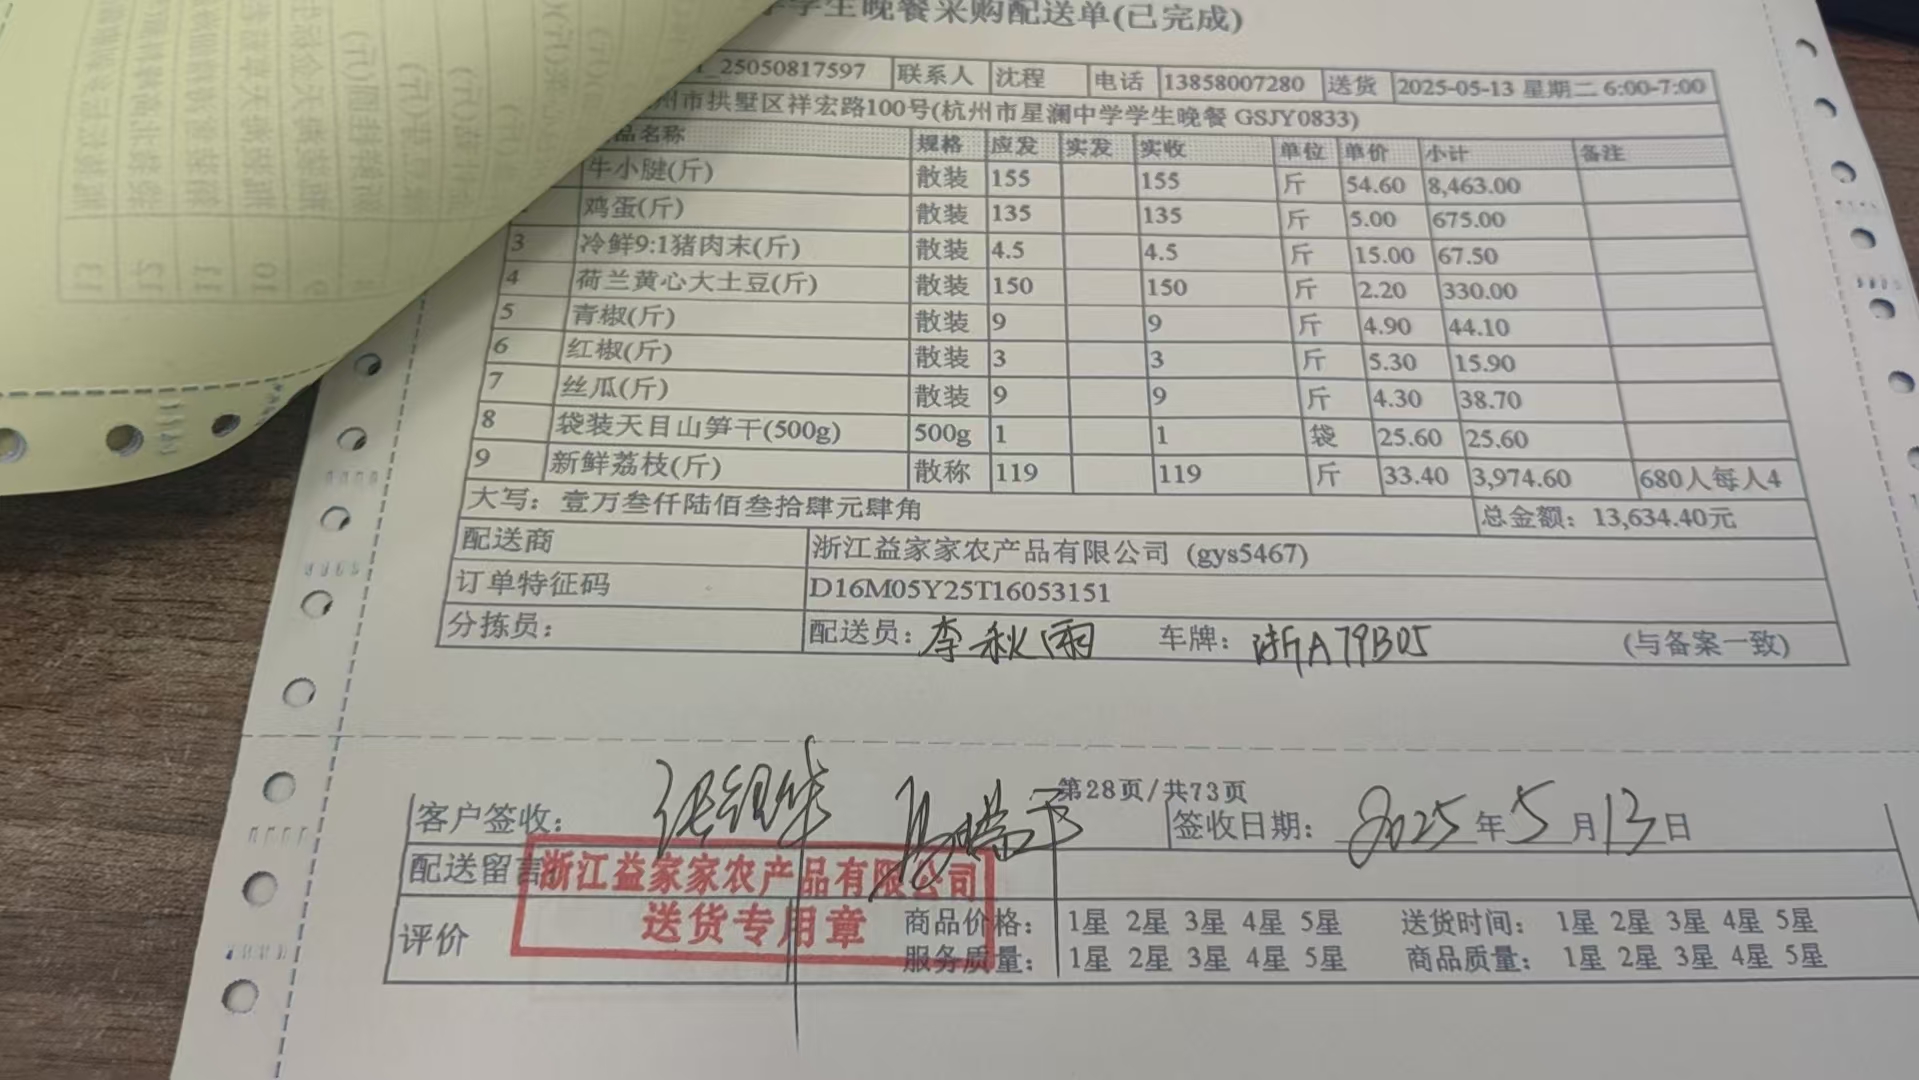 学生晚餐采购配送单(已完成)
_25050817597 联系人 沈程 电话 13858007280 送货 2025-05-13 星期二 6:00-7:00
州市拱墅区祥宏路100号(杭州市星澜中学学生晚餐 GSJY0833)
品名称 规格 应发 实发 实收 单位 单价 小计 备注
牛小腱(斤) 散装 155 155 斤 54.60 8,463.00
鸡蛋(斤) 散装 135 135 斤 5.00 675.00
3 冷鲜9:1猪肉末(斤) 散装 4.5 4.5 斤 15.00 67.50
4 荷兰黄心大土豆(斤) 散装 150 150 斤 2.20 330.00
5 青椒(斤) 散装 9 9 斤 4.90 44.10
6 红椒(斤) 散装 3 3 斤 5.30 15.90
7 丝瓜(斤) 散装 9 9 斤 4.30 38.70
8 袋装天目山笋干(500g) 500g 1 1 袋 25.60 25.60
9 新鲜荔枝(斤) 散称 119 119 斤 33.40 3,974.60 680人每人4
大写：壹万叁仟陆佰叁拾肆元肆角 总金额：13,634.40元
配送商 浙江益家家农产品有限公司 (gys5467)
订单特征码 D16M05Y25T16053151
分拣员： 配送员：李秋雨 车牌：浙A79B05 (与备案一致)
第28页/共73页
客户签收： 签收日期：2025年5月13日
配送留言
浙江益家家农产品有限公司
送货专用章
评价 商品价格： 1星 2星 3星 4星 5星 送货时间： 1星 2星 3星 4星 5星
服务质量： 1星 2星 3星 4星 5星 商品质量： 1星 2星 3星 4星 5星